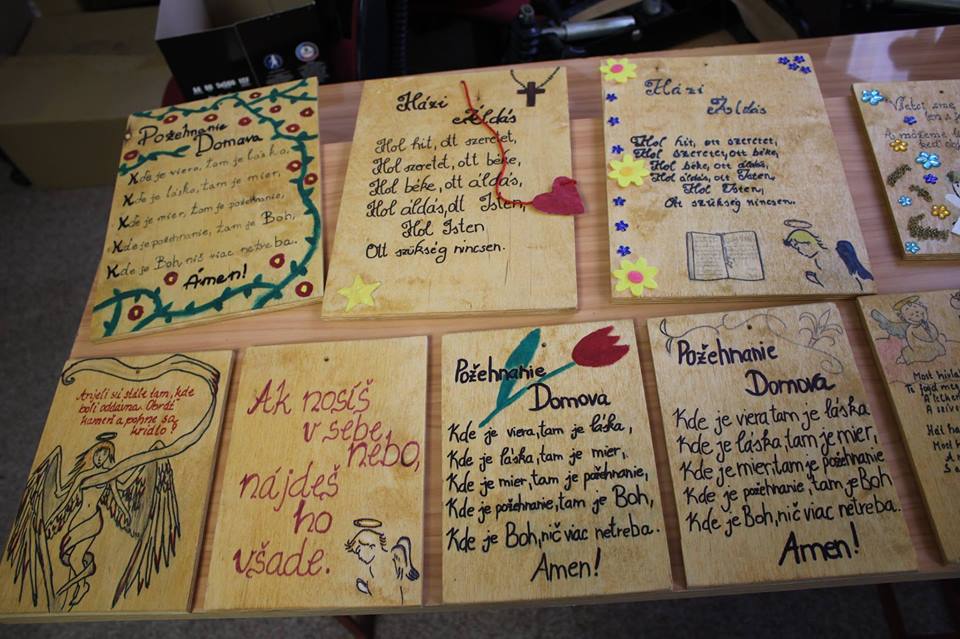 Požehnanie
Domova
Kde je viera, tam je láska,
Kde je láska, tam je mier,
Kde je mier, tam je požehnanie,
Kde je požehnanie, tam je Boh,
Kde je Boh, nič viac netreba.
Ámen!
Házi
Áldás
Hol hit, ott szeretet,
Hol szeretet, ott béke,
Hol béke, ott áldás,
Hol áldás, ott Isten,
Hol Isten
Ott szükség nincsen.
Házi
Áldás
Hol hit, ott szeretet,
Hol szeretet, ott béke,
Hol béke, ott áldás,
Hol áldás, ott Isten,
Hol Isten,
Ott szükség nincsen.
Všetci sme
Anjeli sú stále tam, kde
boli oddávna. Obráť
kameň a pohne sa
krídlo!
Ak nosíš
v sebe
nebo,
nájdeš
ho
všade.
Požehnanie
Domova
Kde je viera, tam je láska,
Kde je láska, tam je mier,
Kde je mier, tam je požehnanie,
Kde je požehnanie, tam je Boh,
Kde je Boh, nič viac netreba.
Amen!
Požehnanie
Domova
Kde je viera tam je láska
Kde je láska tam je mier,
Kde je mier, tam je požehnanie
Kde je požehnanie, tam je Boh
Kde je Boh, nič viac netreba.
Amen!
Most